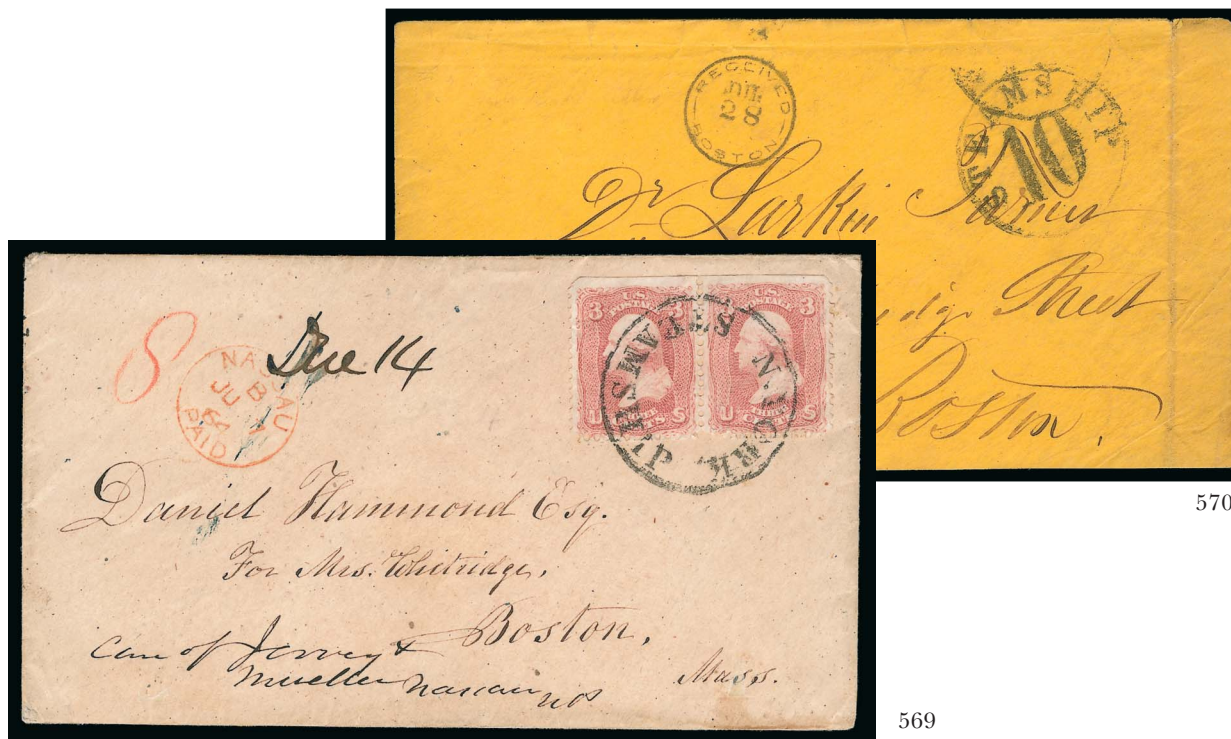 RECEIVED
JUL
28
BOSTON
STEAMSHIP
10
Dr Larkin Turner
Street
Boston.
570
8
NASSAU
JU 8
PAID
Due 14
3 U.S. POSTAGE 3
U THREE CENTS S
3 U.S. POSTAGE 3
U THREE CENTS S
N. YORK STEAMSHIP
Daniel Hammond Esq.
For Mrs. Whitridge,
Boston,
Mass.
Care of Jervey &
Mueller Nassau
NP
569